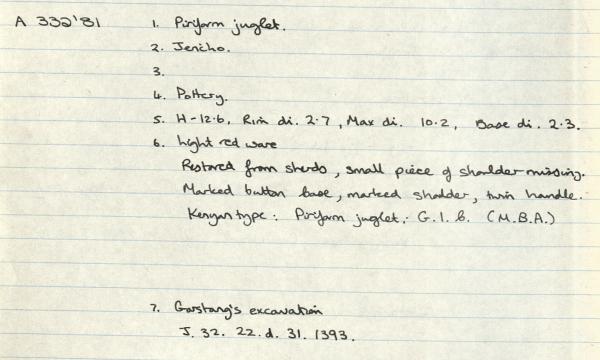 A 332'81
1. Piriform juglet.
2. Jericho.
3.
4. Pottery.
5. H-12.6, Rim di. 2.7, Max di. 10.2, Base di. 2.3.
6. Light red ware
Restored from sherds, small piece of shoulder missing.
Marked button base, marked shoulder, twin handle.
Kenyon type: Piriform juglet: G.1.b. (M.B.A.)
7. Garstang's excavation
J. 32. 22.d. 31. 1393.